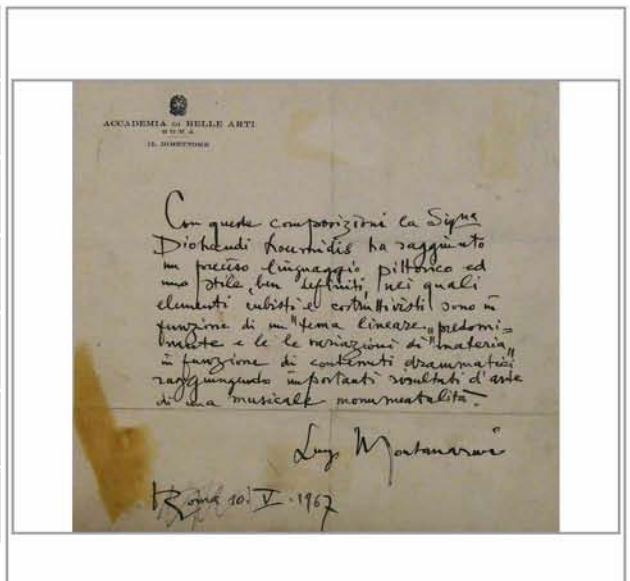 ACCADEMIA DI BELLE ARTI
ROMA
IL DIRETTORE
Con queste composizioni la Signa
Diohandi Loumidis ha raggiunto
un preciso linguaggio pittorico ed
uno stile, ben definiti, nei quali
elementi cubisti e costruttivisti sono in
funzione di un "tema lineare" predomi=
nante e le le variazioni di "materia"
in funzione di contenuti drammatici
raggiungendo importanti risultati d'arte
di una musicale monumentalità.
Luigi Montanarini
Roma 10. V. 1967